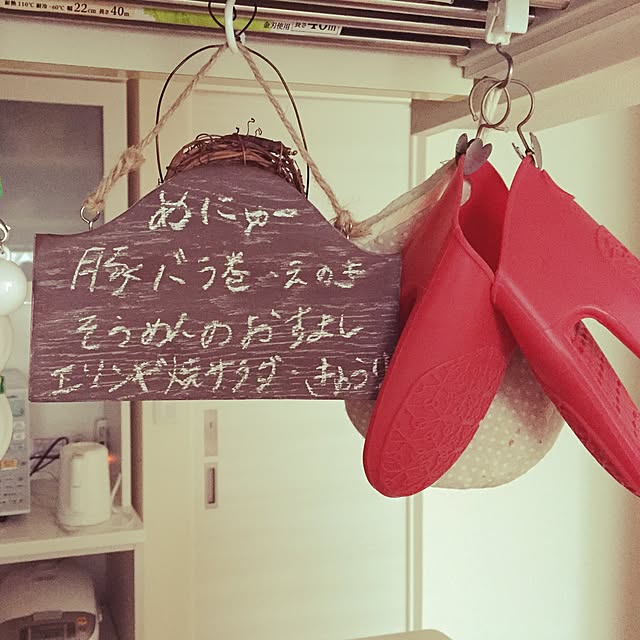 耐熱110℃ 耐冷-60℃ 幅22cm 長さ40m
金刃使用 長さ40m
めにゅー
豚バラ巻・えのき
そうめんのおすまし
エリンギ焼サラダ・きゅうり